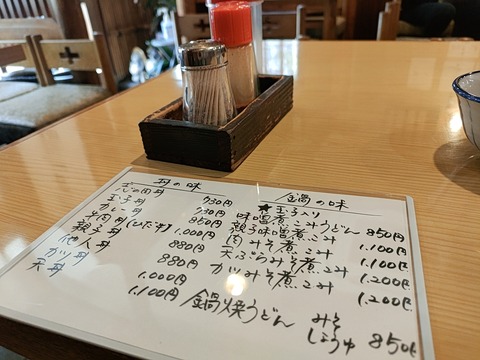 丼の味
志の田丼 730円
玉子丼 730円
牛肉丼(ひだ牛) 1.000円
親子丼 880円
他人丼 880円
カツ丼 1.000円
天丼 1.100円
鍋の味
★玉子入り
味噌煮こみうどん 850円
親子味噌煮こみ 1.100円
肉みそ煮こみ 1.100円
天ぷらみそ煮こみ 1.200円
カツみそ煮こみ 1.200円
鍋焼うどん みそ
しょうゆ 850円